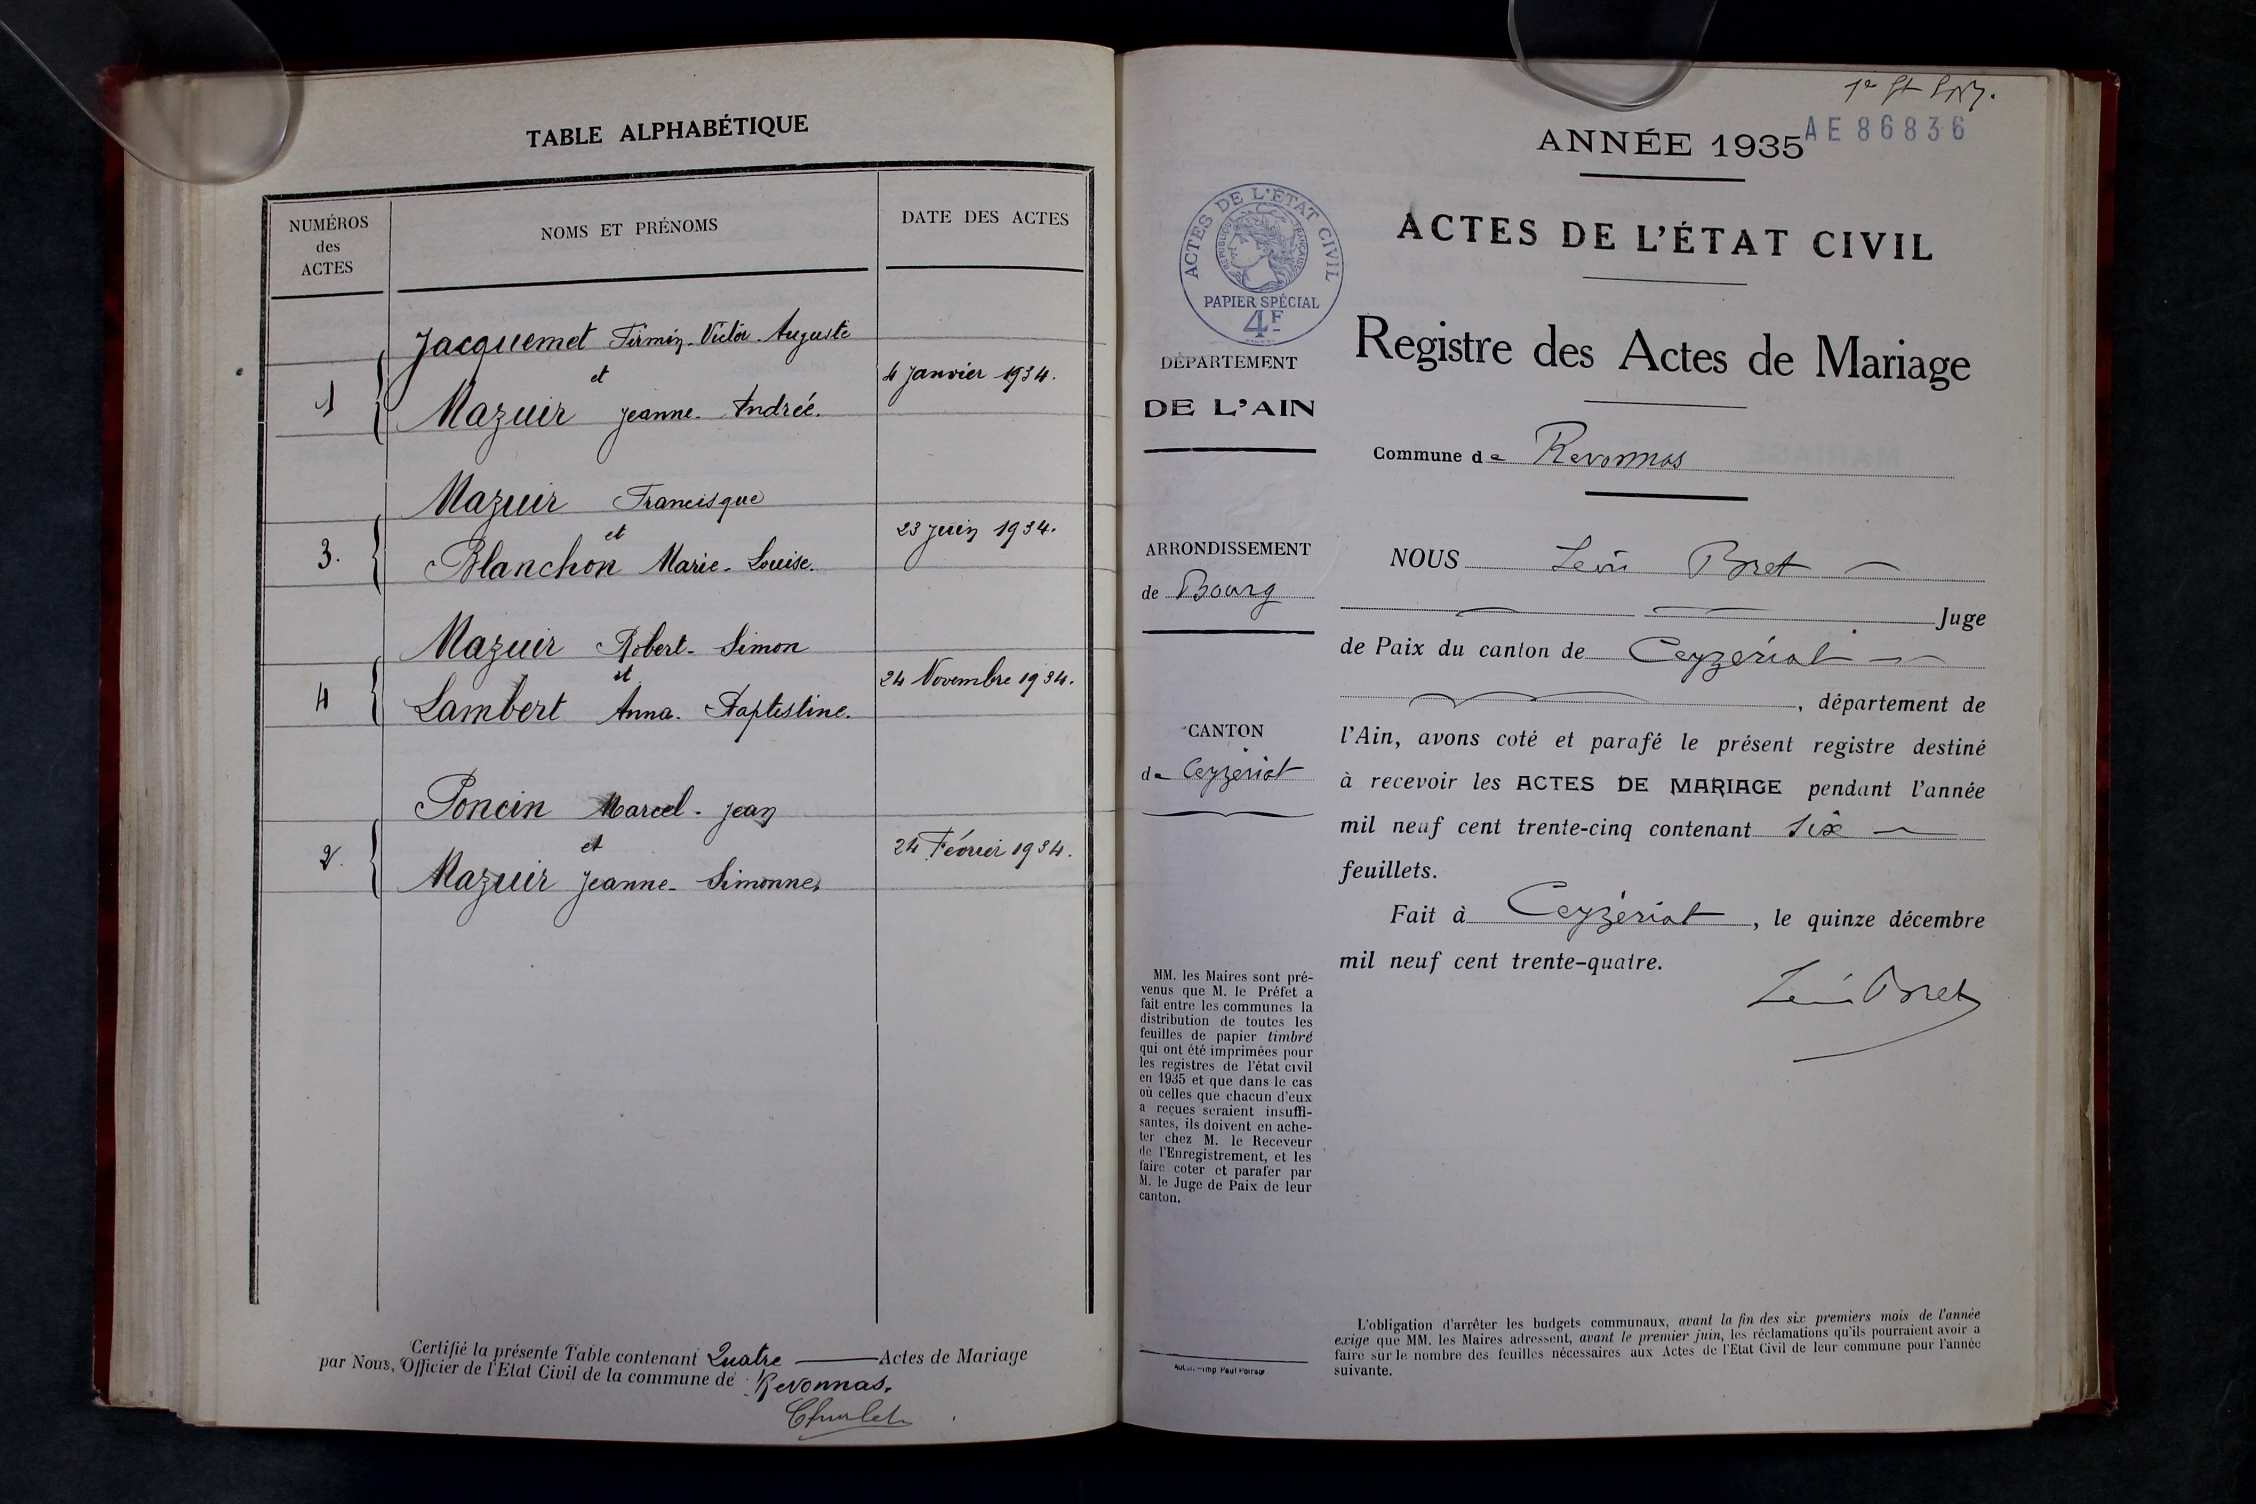 TABLE ALPHABÉTIQUE
NUMÉROS
des
ACTES
NOMS ET PRÉNOMS
DATE DES ACTES
Jacquemet Firmin-Victor-Auguste
et
1
4 Janvier 1934.
Mazuir Jeanne-Andrée.
Mazuir Francisque
et
3.
23 Juin 1934.
Blanchon Marie-Louise.
Mazuir Robert-Simon
et
4
24 Novembre 1934.
Lambert Anna-Baptistine.
Poncin Marcel-Jean
et
2.
24 Février 1934.
Mazuir Jeanne-Simonne.
Certifié la présente Table contenant Quatre Actes de Mariage
par Nous, Officier de l'Etat Civil de la commune de Revonnas.
AE 86836
ANNÉE 1935
ACTES DE L'ÉTAT CIVIL
RÉPUBLIQUE FRANÇAISE
PAPIER SPÉCIAL
4F
ACTES DE L'ÉTAT CIVIL
Registre des Actes de Mariage
DÉPARTEMENT
DE L'AIN
Commune de Revonnas
ARRONDISSEMENT
de Bourg
CANTON
de Ceyzériat
NOUS Léon Bret
Juge
de Paix du canton de Ceyzériat
, département de
l'Ain, avons coté et parafé le présent registre destiné
à recevoir les ACTES DE MARIAGE pendant l'année
mil neuf cent trente-cinq contenant six
feuillets.
Fait à Ceyzériat, le quinze décembre
mil neuf cent trente-quatre.
Léon Bret
MM. les Maires sont pré-
venus que M. le Préfet a
fait entre les communes la
distribution de toutes les
feuilles de papier timbré
qui ont été imprimées pour
les registres de l'état civil
en 1935 et que dans le cas
où celles que chacun d'eux
a reçues seraient insuffi-
santes, ils doivent en ache-
ter chez M. le Receveur
de l'Enregistrement, et les
faire coter et parafer par
M. le Juge de Paix de leur
canton.
L'obligation d'arrêter les budgets communaux, avant la fin des six premiers mois de l'année
exige que MM. les Maires adressent, avant le premier juin, les réclamations qu'ils pourraient avoir a
faire sur le nombre des feuilles nécessaires aux Actes de l'Etat Civil de leur commune pour l'année
suivante.